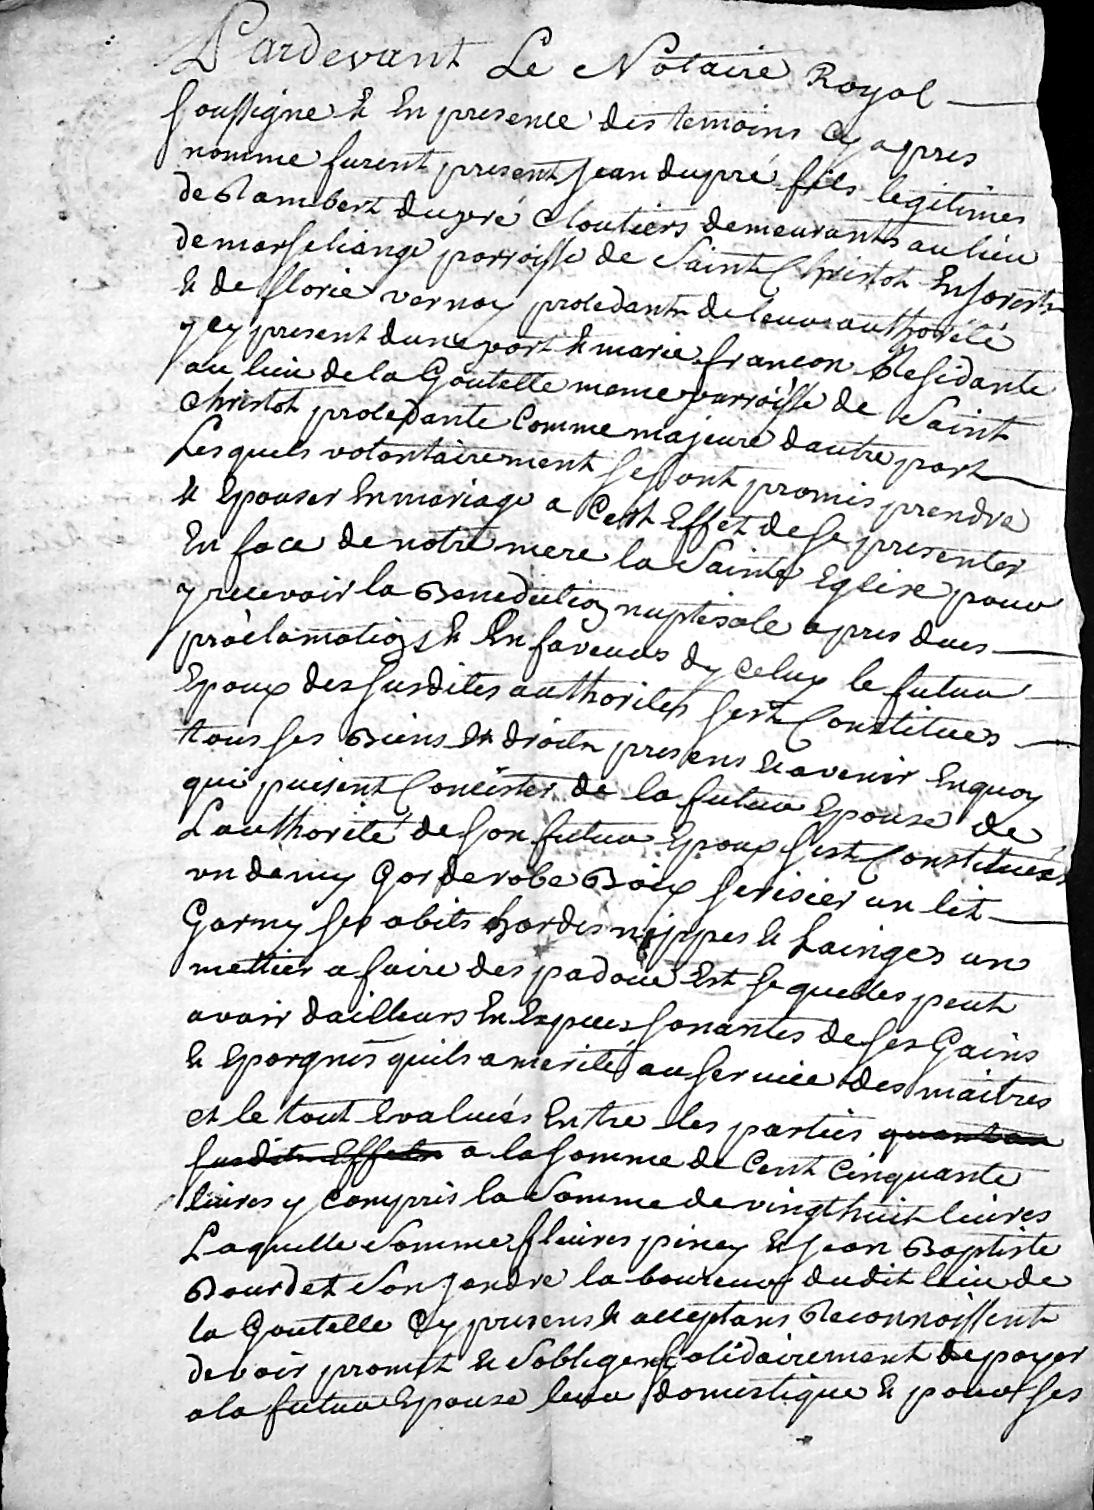 Pardevant Le Notaire Royal
soussigne & En presence des temoins Cy apres
nomme furent present Jean dupré fils legitimes
de Rambert dupré Cloutiers demeurants au lieu
de marseliange parroisse de Saint Christot En forest
& de florie vernay procedants de leurs authorité
y Cy present dune part & marie francon Residante
au lieu de la Goutelle meme parroisse de Saint
Christot procedante Comme majeure dautre part
Lesquels volontairement se sont promis prendre
& Epouser En mariage a Cest Effet de se presenter
En face de notre mere la Sainte Eglise pour
y recevoir la Benediction nuptisale apres dues
proclamations & En faveurs dy Celuy le futur
Epoux des susdites authorites sest Constitues
tous ses Biens & droits presens & avenir En quoy
qui puisent Concister de la futur Epouse de
Lauthorité de son futur Epoux sest Constituées
un demy Garderobe Boix serisier un lit
Garny ses abits hardes nippes & Lainges un
mettier a faire des padoue Est se quelles peut
avoir dailleurs En Especes sonantes de ses Gains
& Eporgnes quils a merité au service des maitres
et le tout Evalués Entre les parties quant au
susdits Effets a la somme de Cent Cinquante
livres y Compris la Somme de vingt huit livres
Laquelle Somme fleures piney & Jean Baptiste
Bourdet Son jandre laboureurs dudit lieu de
la Goutelle Cy presens & acceptans Reconnoissent
devoir promet & Sobligent solidairement de payer
a la futur Epouse leur domestique & pour ses